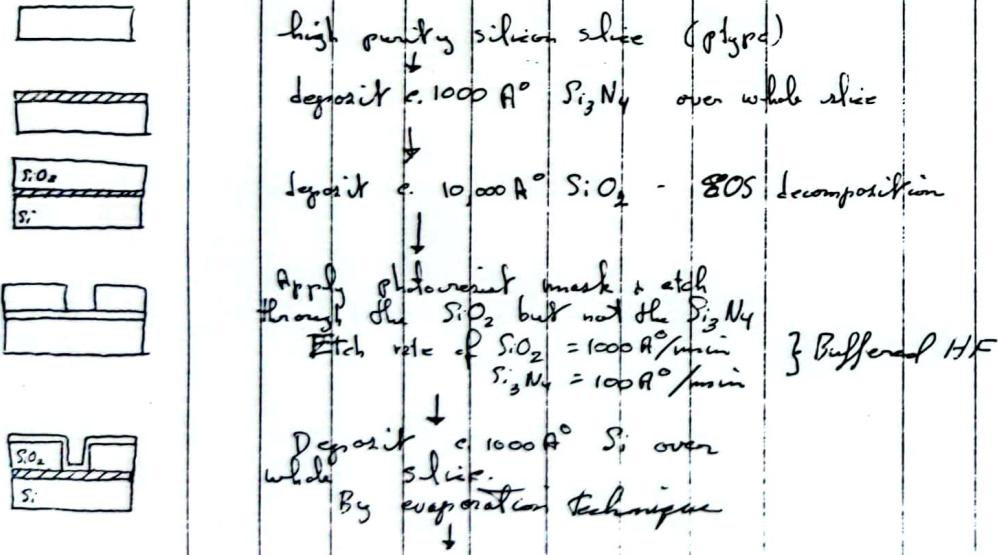 high purity silicon slice (ptype)
deposit c. 1000 A° Si3N4 over whole slice
SiO2
Si
deposit c. 10,000 A° SiO2 - EOS decomposition
Apply photoresist mask & etch
through the SiO2 but not the Si3N4
Etch rate of SiO2 = 1000 A°/min
Si3N4 = 100 A°/min
} Buffered HF
Deposit c. 1000 A° Si over
whole slice.
SiO2
Si
By evaporation technique